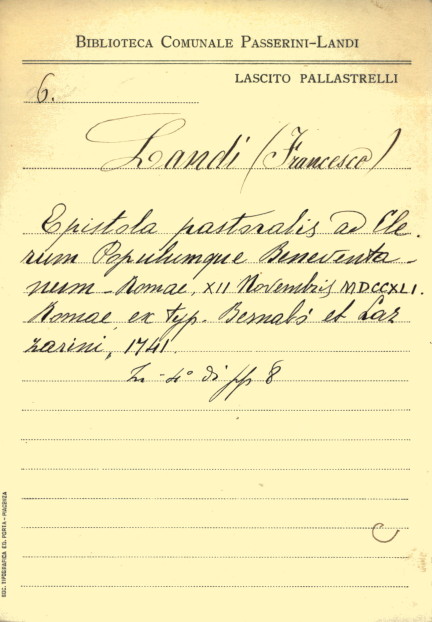 BIBLIOTECA COMUNALE PASSERINI-LANDI
LASCITO PALLASTRELLI
6.
Landi (Francesco)
Epistola pastoralis ad Cle-
rum Populumque Beneventa-
num - Romae, XII Novembris MDCCXLI.
Romae, ex typ. Bernabò et Laz
zarini, 1741.
In-4° di pp 8
C
SOC. TIPOGRAFICA ED. PORTA - PIACENZA